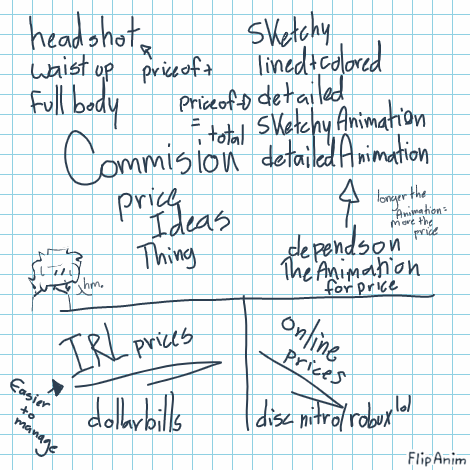 headshot
waist up
full body
price of +
SKetchy
lined+colored
detailed
SKetchy Animation
detailed Animation
price of→
= total
Commision
price
Ideas
Thing
longer the
Animation=
more the
price
depends on
The Animation
for price
hm.
IRL prices
Easier
to
manage
dollar bills
Online
prices
disc nitro/robux lol
FlipAnim